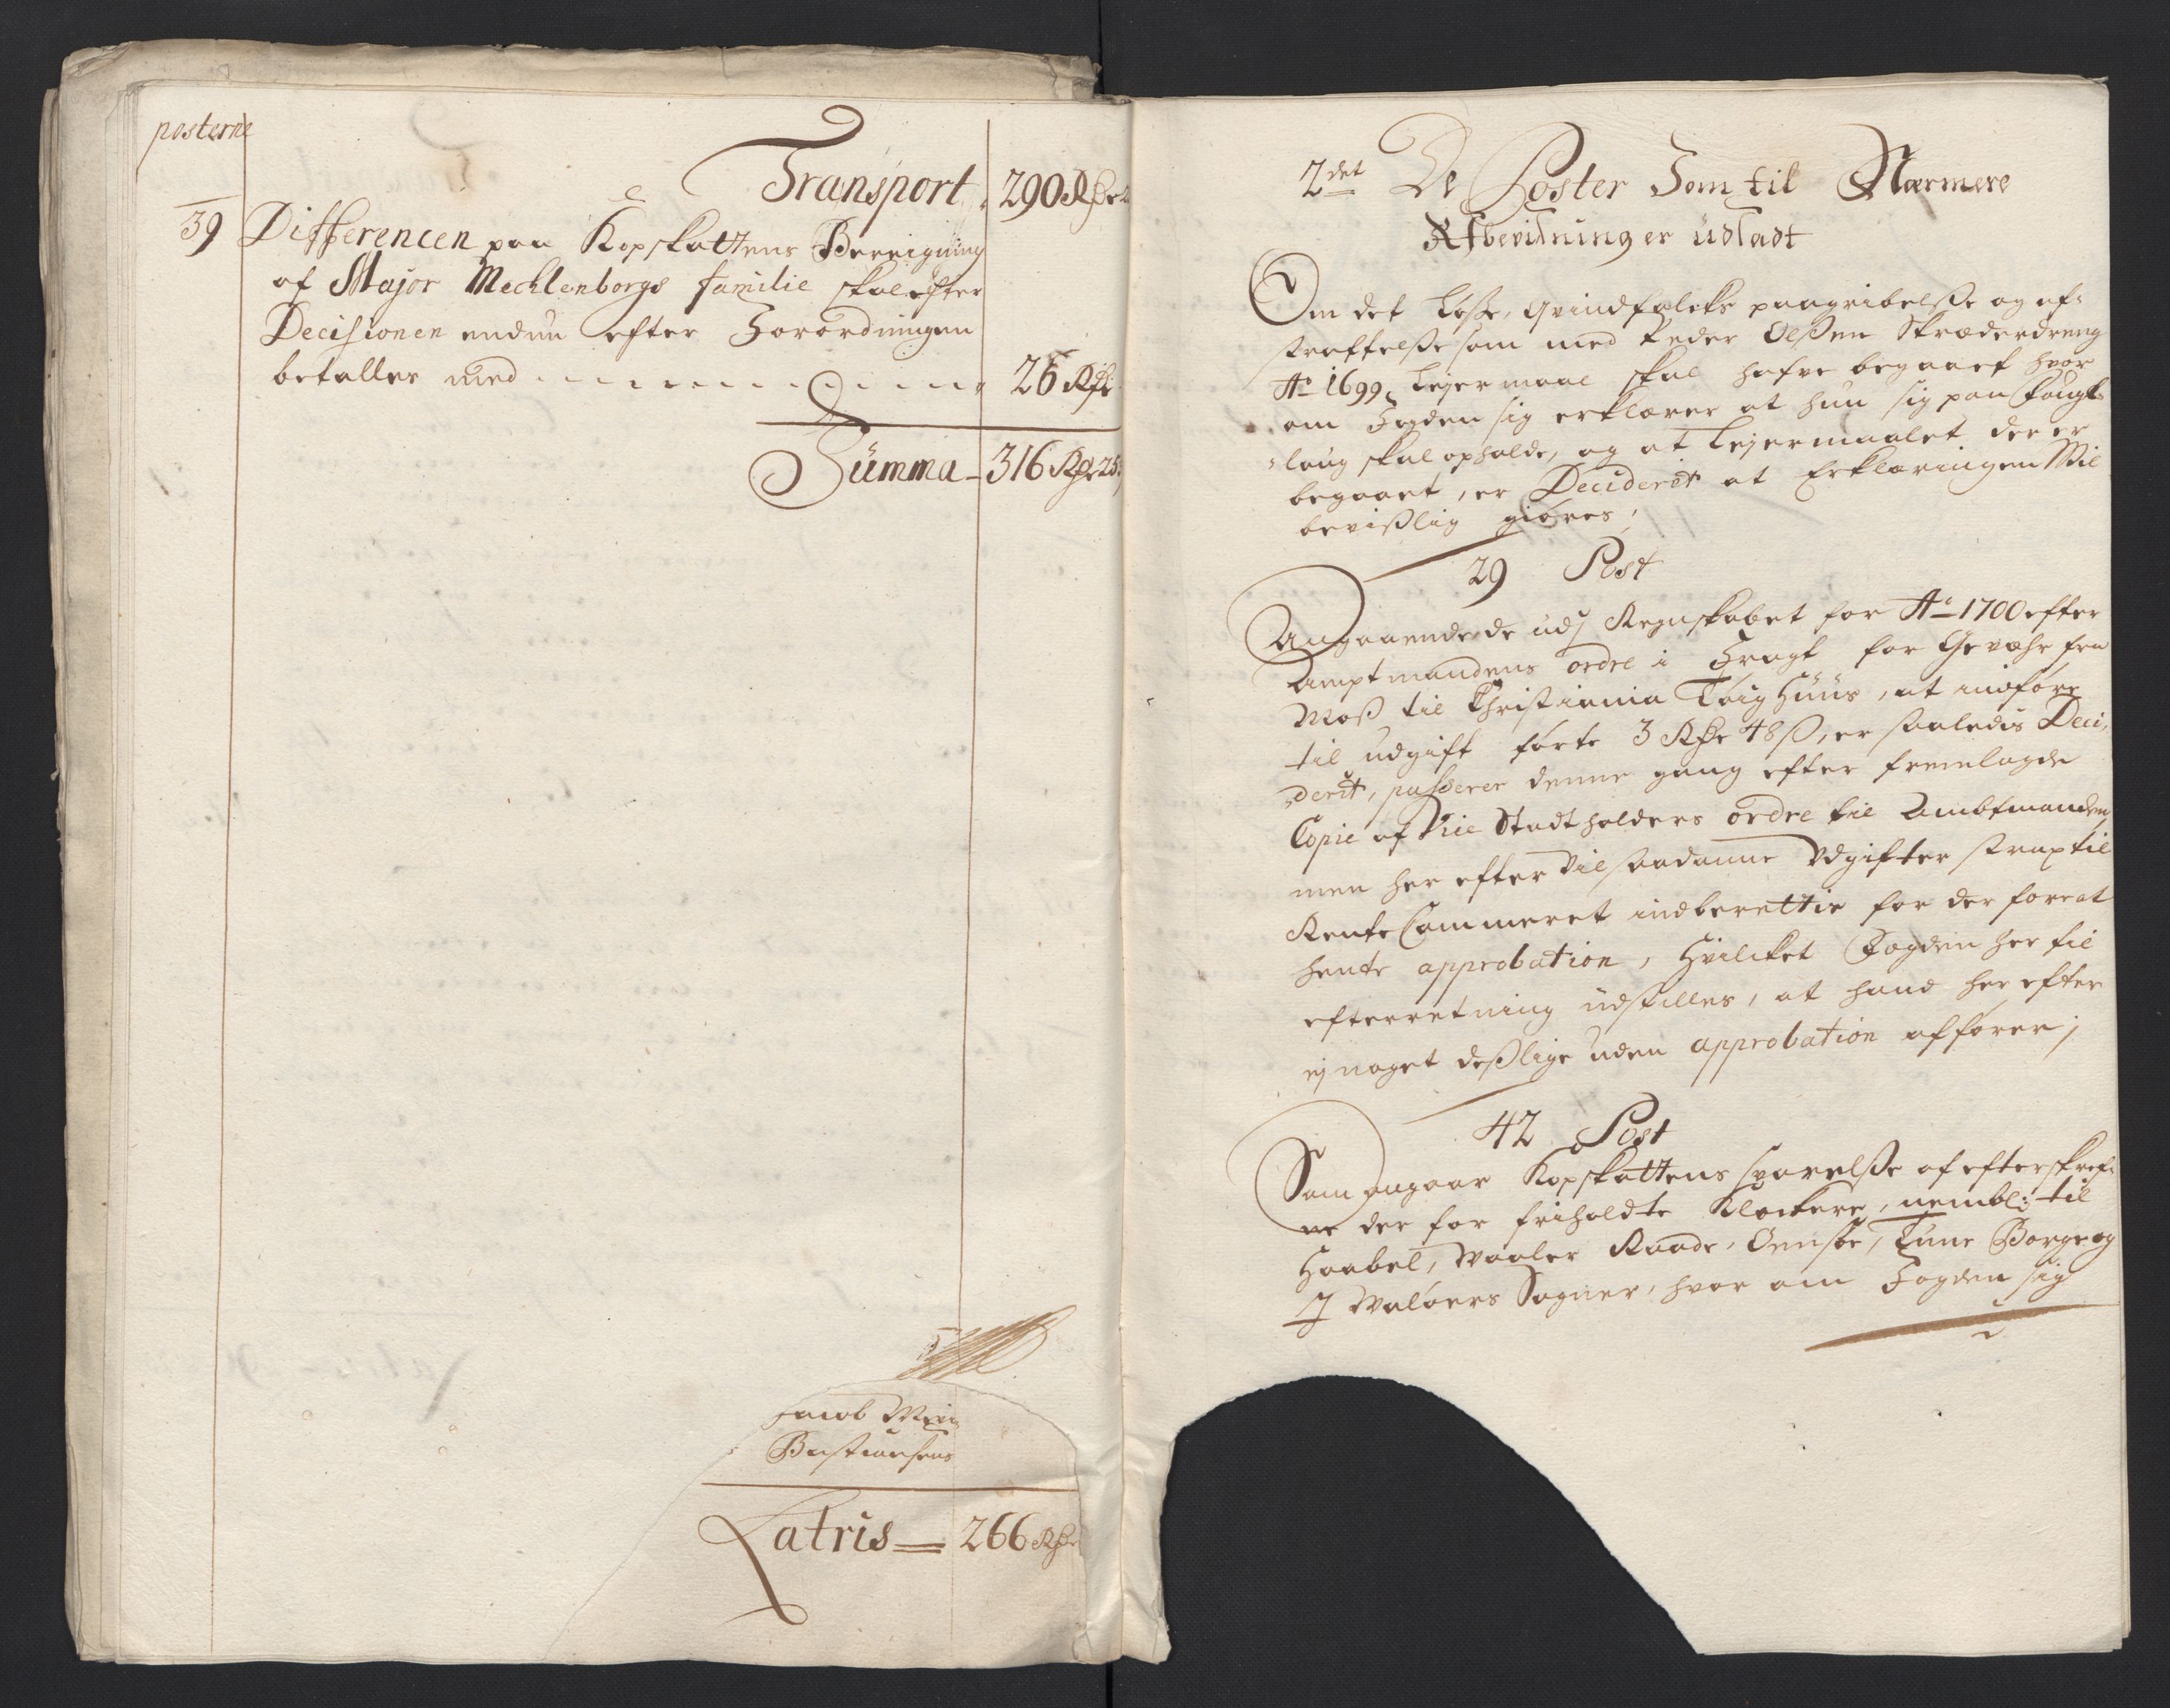 posterne
Transport 290 Rdr
39 Differencen paa Kopskattens Bereigning
af Major Mechlenborgs familie skal efter
Decisionen endnu efter Forordningen
betalles med 26 Rdr
Summa - 316 Rdr 25
Jacob
Bastiansens
Latris = 266 Rdr
2det De Poster Som til Nærmere
Afbevidning er udsadt
Om det Løsse, Qvindfolcks paagribelsse og af-
straffelsse som med Peder Olssen Skrædderdreng
Ao 1699, Lejermaal skal hafve begaaet hvor
om Fogden sig erklærer at hun sig paa
laug skal opholde, og at Lejermaalet der er
begaaet, er Decideret at Erklæringen Vil
bevisslig giøres;
29 Post
Angaaende de udj Regnskabet for Ao 1700 efter
Amptmandens ordre i Fragt for Gevæhr fra
Moss til Christiania Tøig Huus, at indføre
til udgift førte 3 Rdr 48 ß, er saaledis Deci-
derit, passerer denne gang efter fremlagde
Copie af Vice Stadtholders ordre til Ambtmanden,
men her efter Vil saadanne Udgifter strax til
Rente Cammeret indberettis for der forre at
hente approbation, Hvilcket Fogden her til
efterretning udstilles, at hand her efter
ej noget desslige uden approbation affører;
42 Post
Som angaar Kopskattens svarelsse af efterskref-
ne der for friholdte Klockere, nembl: til
Haabel, Waaler Raade, Onnsøe, Tune Borge og
J Waløers Sogner, hvor om Fogden sig